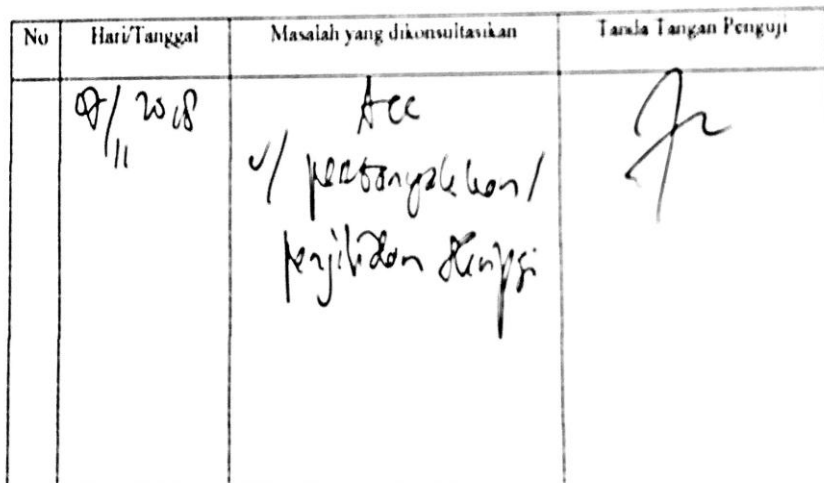 No Hari/Tanggal Masalah yang dikonsultasikan Tanda Tangan Penguji
/11 2018 Acc
u/ perbanyakkan/
penjilidan skripsi